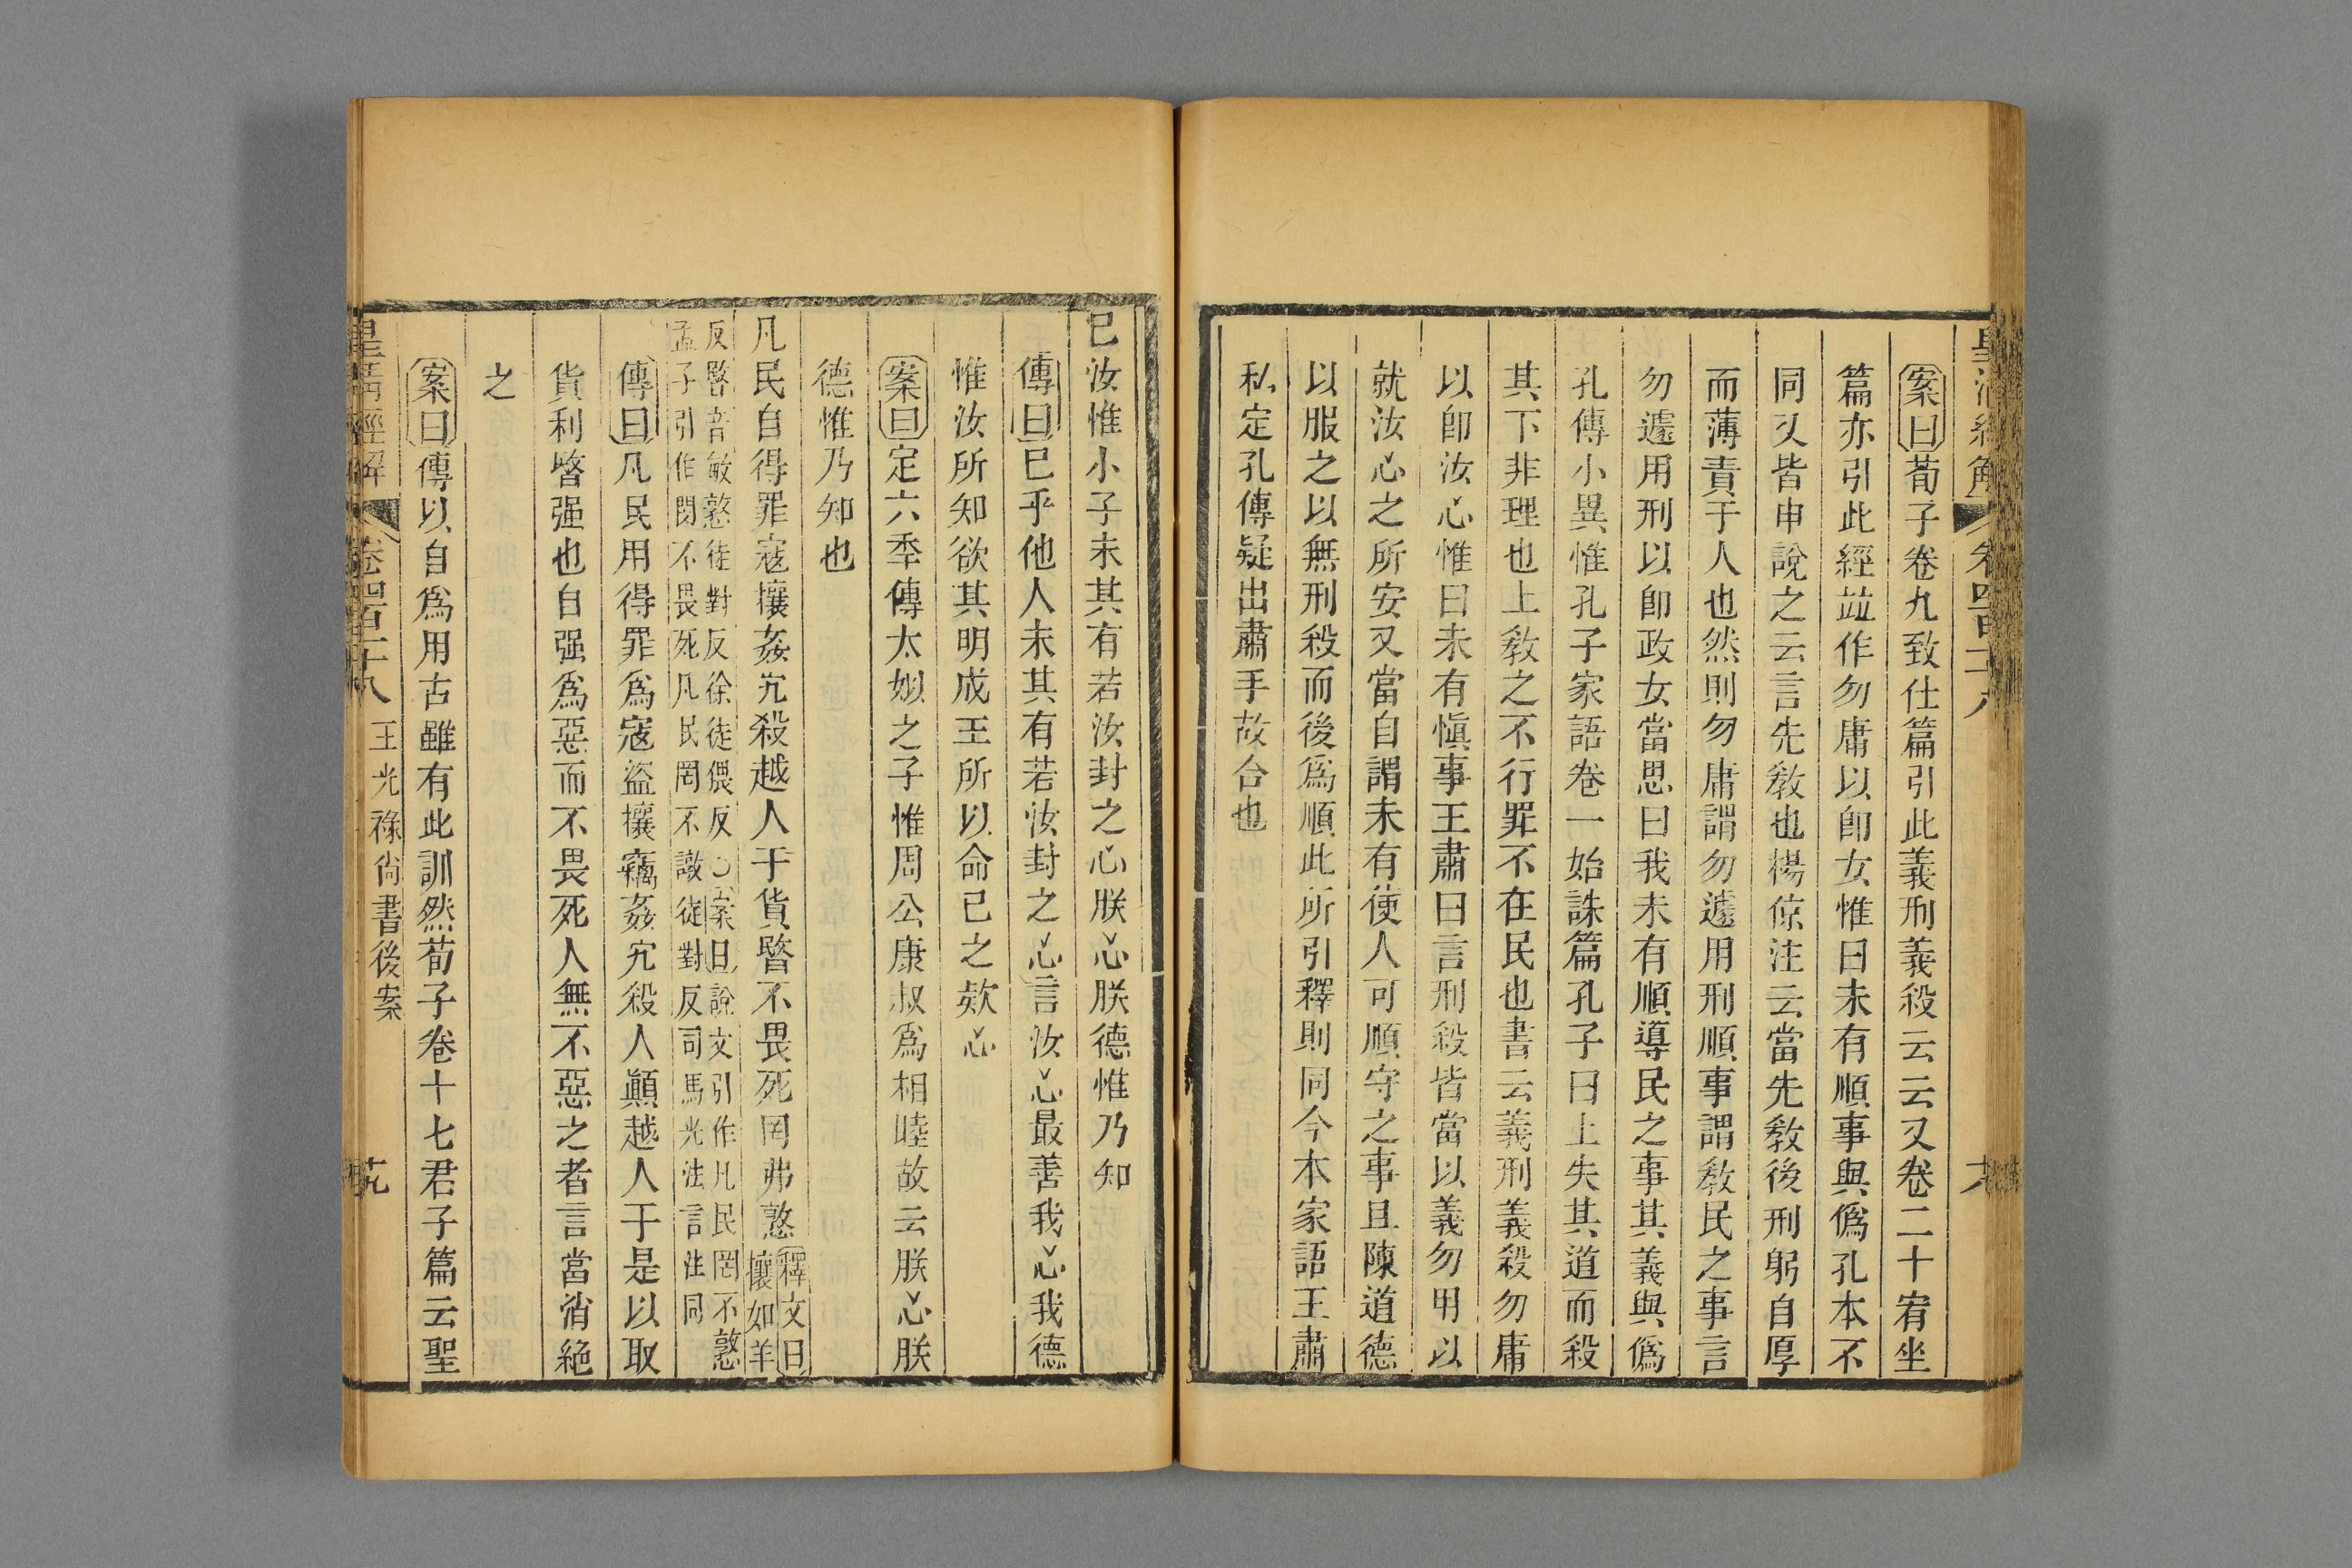 皇清經解 卷四百二十八 十八
案曰荀子卷九致仕篇引此義刑義殺云云又卷二十宥坐
篇亦引此經竝作勿庸以卽女惟曰未有順事與僞孔本不
同又皆申說之云言先敎也楊倞注云當先敎後刑躬自厚
而薄責于人也然則勿庸謂勿遽用刑順事謂敎民之事言
勿遽用刑以卽政女當思曰我未有順導民之事其義與僞
孔傳小異惟孔子家語卷一始誅篇孔子曰上失其道而殺
其下非理也上敎之不行罪不在民也書云義刑義殺勿庸
以卽汝心惟曰未有愼事王肅曰言刑殺皆當以義勿用以
就汝心之所安又當自謂未有使人可順守之事且陳道德
以服之以無刑殺而後爲順此所引釋則同今本家語王肅
私定孔傳疑出肅手故合也
已汝惟小子未其有若汝封之心朕心朕德惟乃知
傳曰已乎他人未其有若汝封之心言汝心最善我心我德
惟汝所知欲其明成王所以命己之欵心
案曰定六年傳太姒之子惟周公康叔爲相睦故云朕心朕
德惟乃知也
凡民自得罪寇攘姦宄殺越人于貨暋不畏死罔弗憝釋文曰
攘如羊
反暋音敏憝徒對反徐徒猥反○案曰說文引作凡民罔不憝
孟子引作閔不畏死凡民罔不譈徒對反司馬光法言注同
傳曰凡民用得罪爲寇盜攘竊姦宄殺人顚越人于是以取
貨利暋强也自强爲惡而不畏死人無不惡之者言當消絶
之
案曰傳以自爲用古雖有此訓然荀子卷十七君子篇云聖
皇清經解 卷四百二十八 王光祿尙書後案